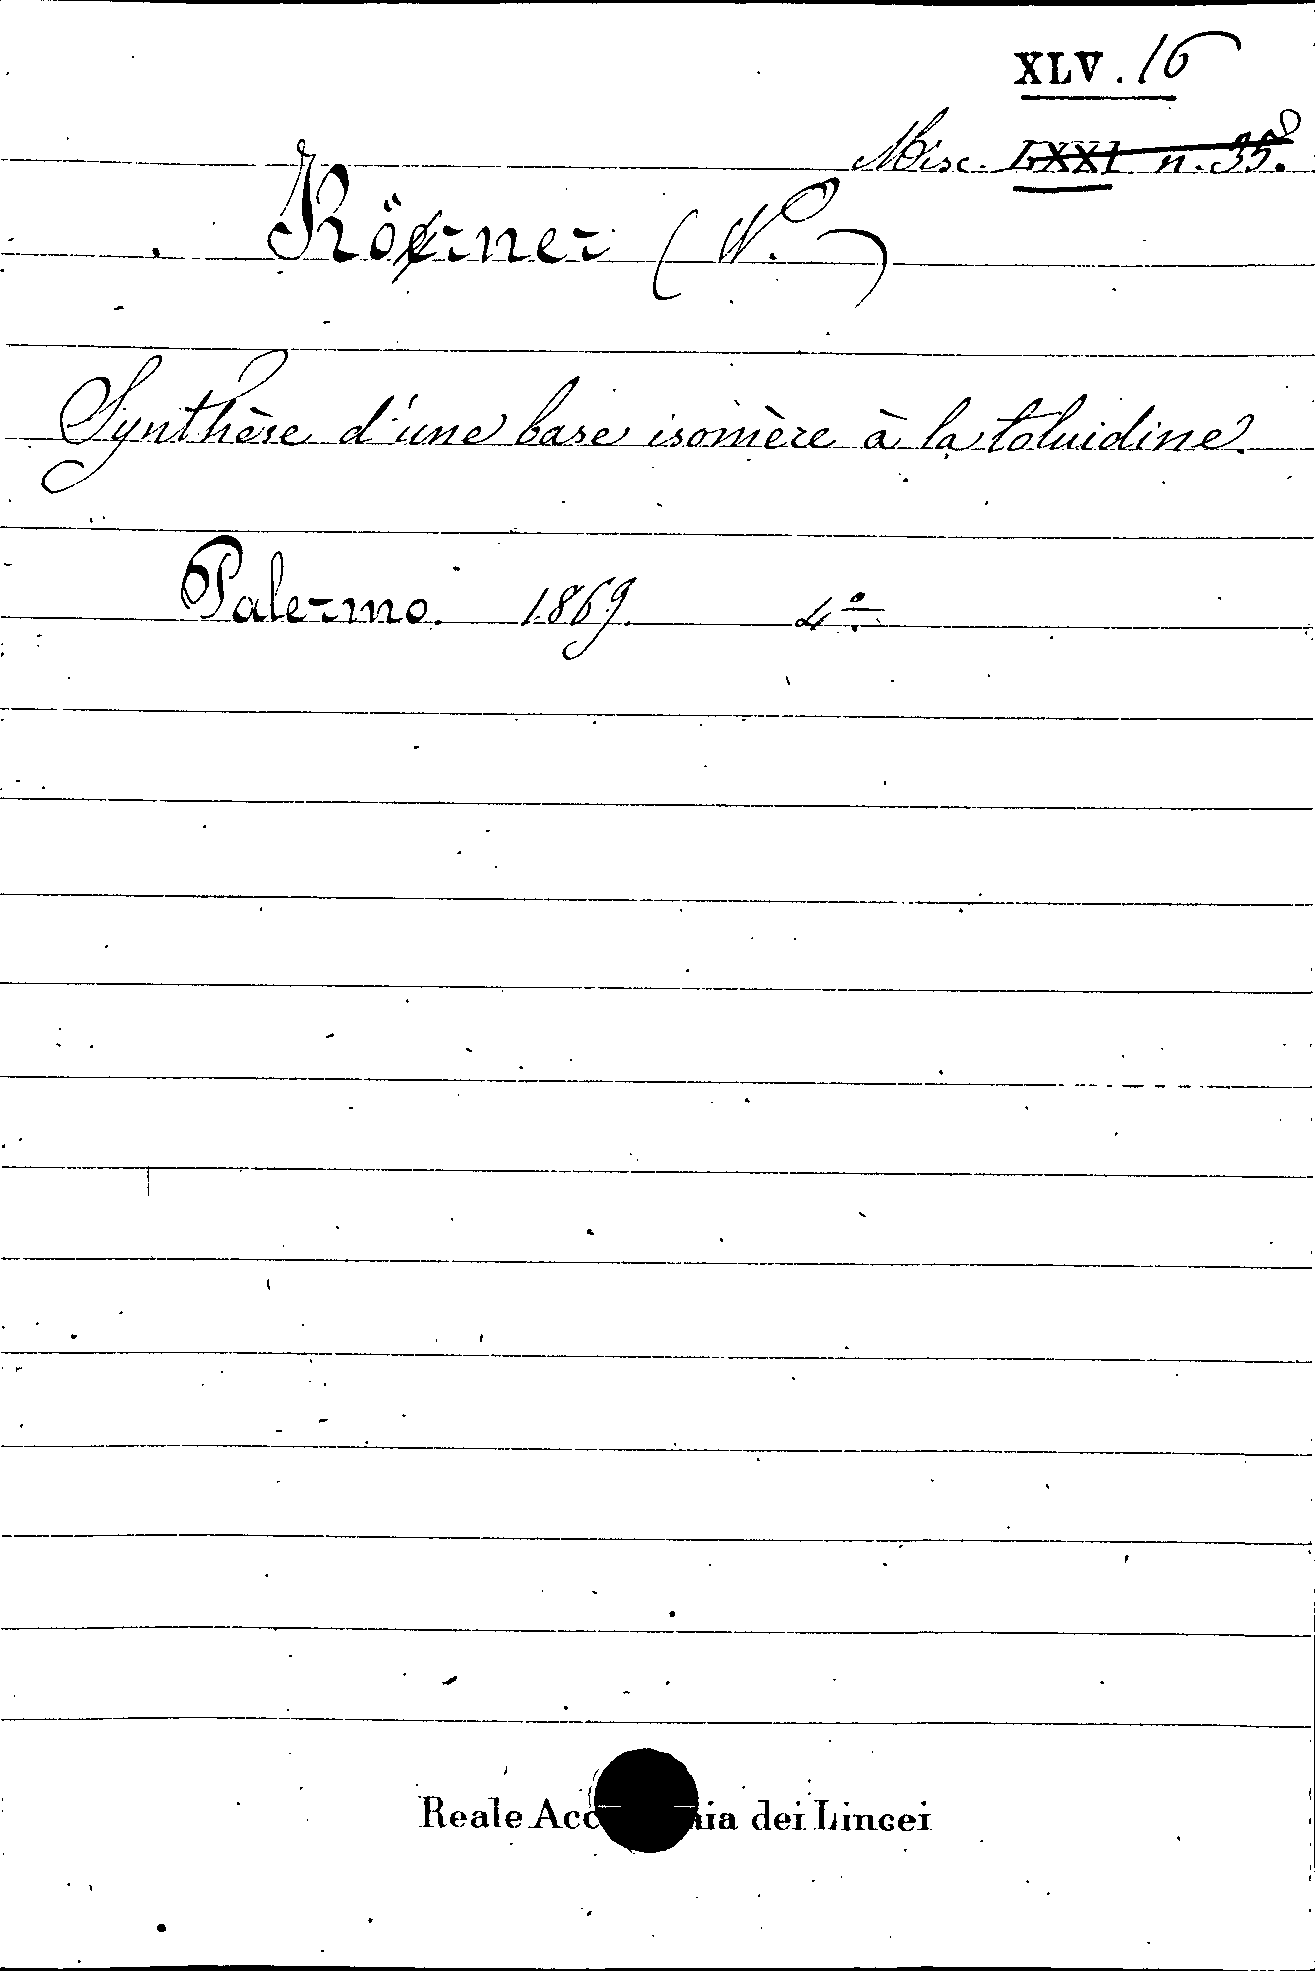 XLV. 16
Misc. LXXI n. 35.
Körner (W.)
Synthèse d'une base isomère à la toluidine.
Palermo. 1869. 4°.
Reale Acc ia dei Lincei